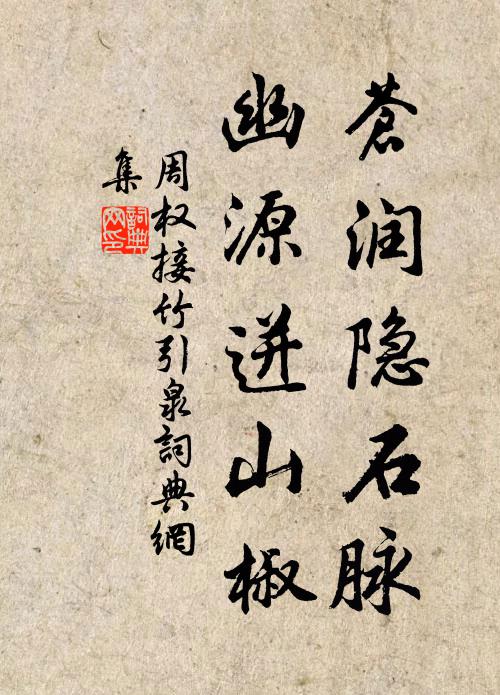 苍润隐石脉
幽源迸山椒
周权接竹引泉詞典網
集
詞典网印